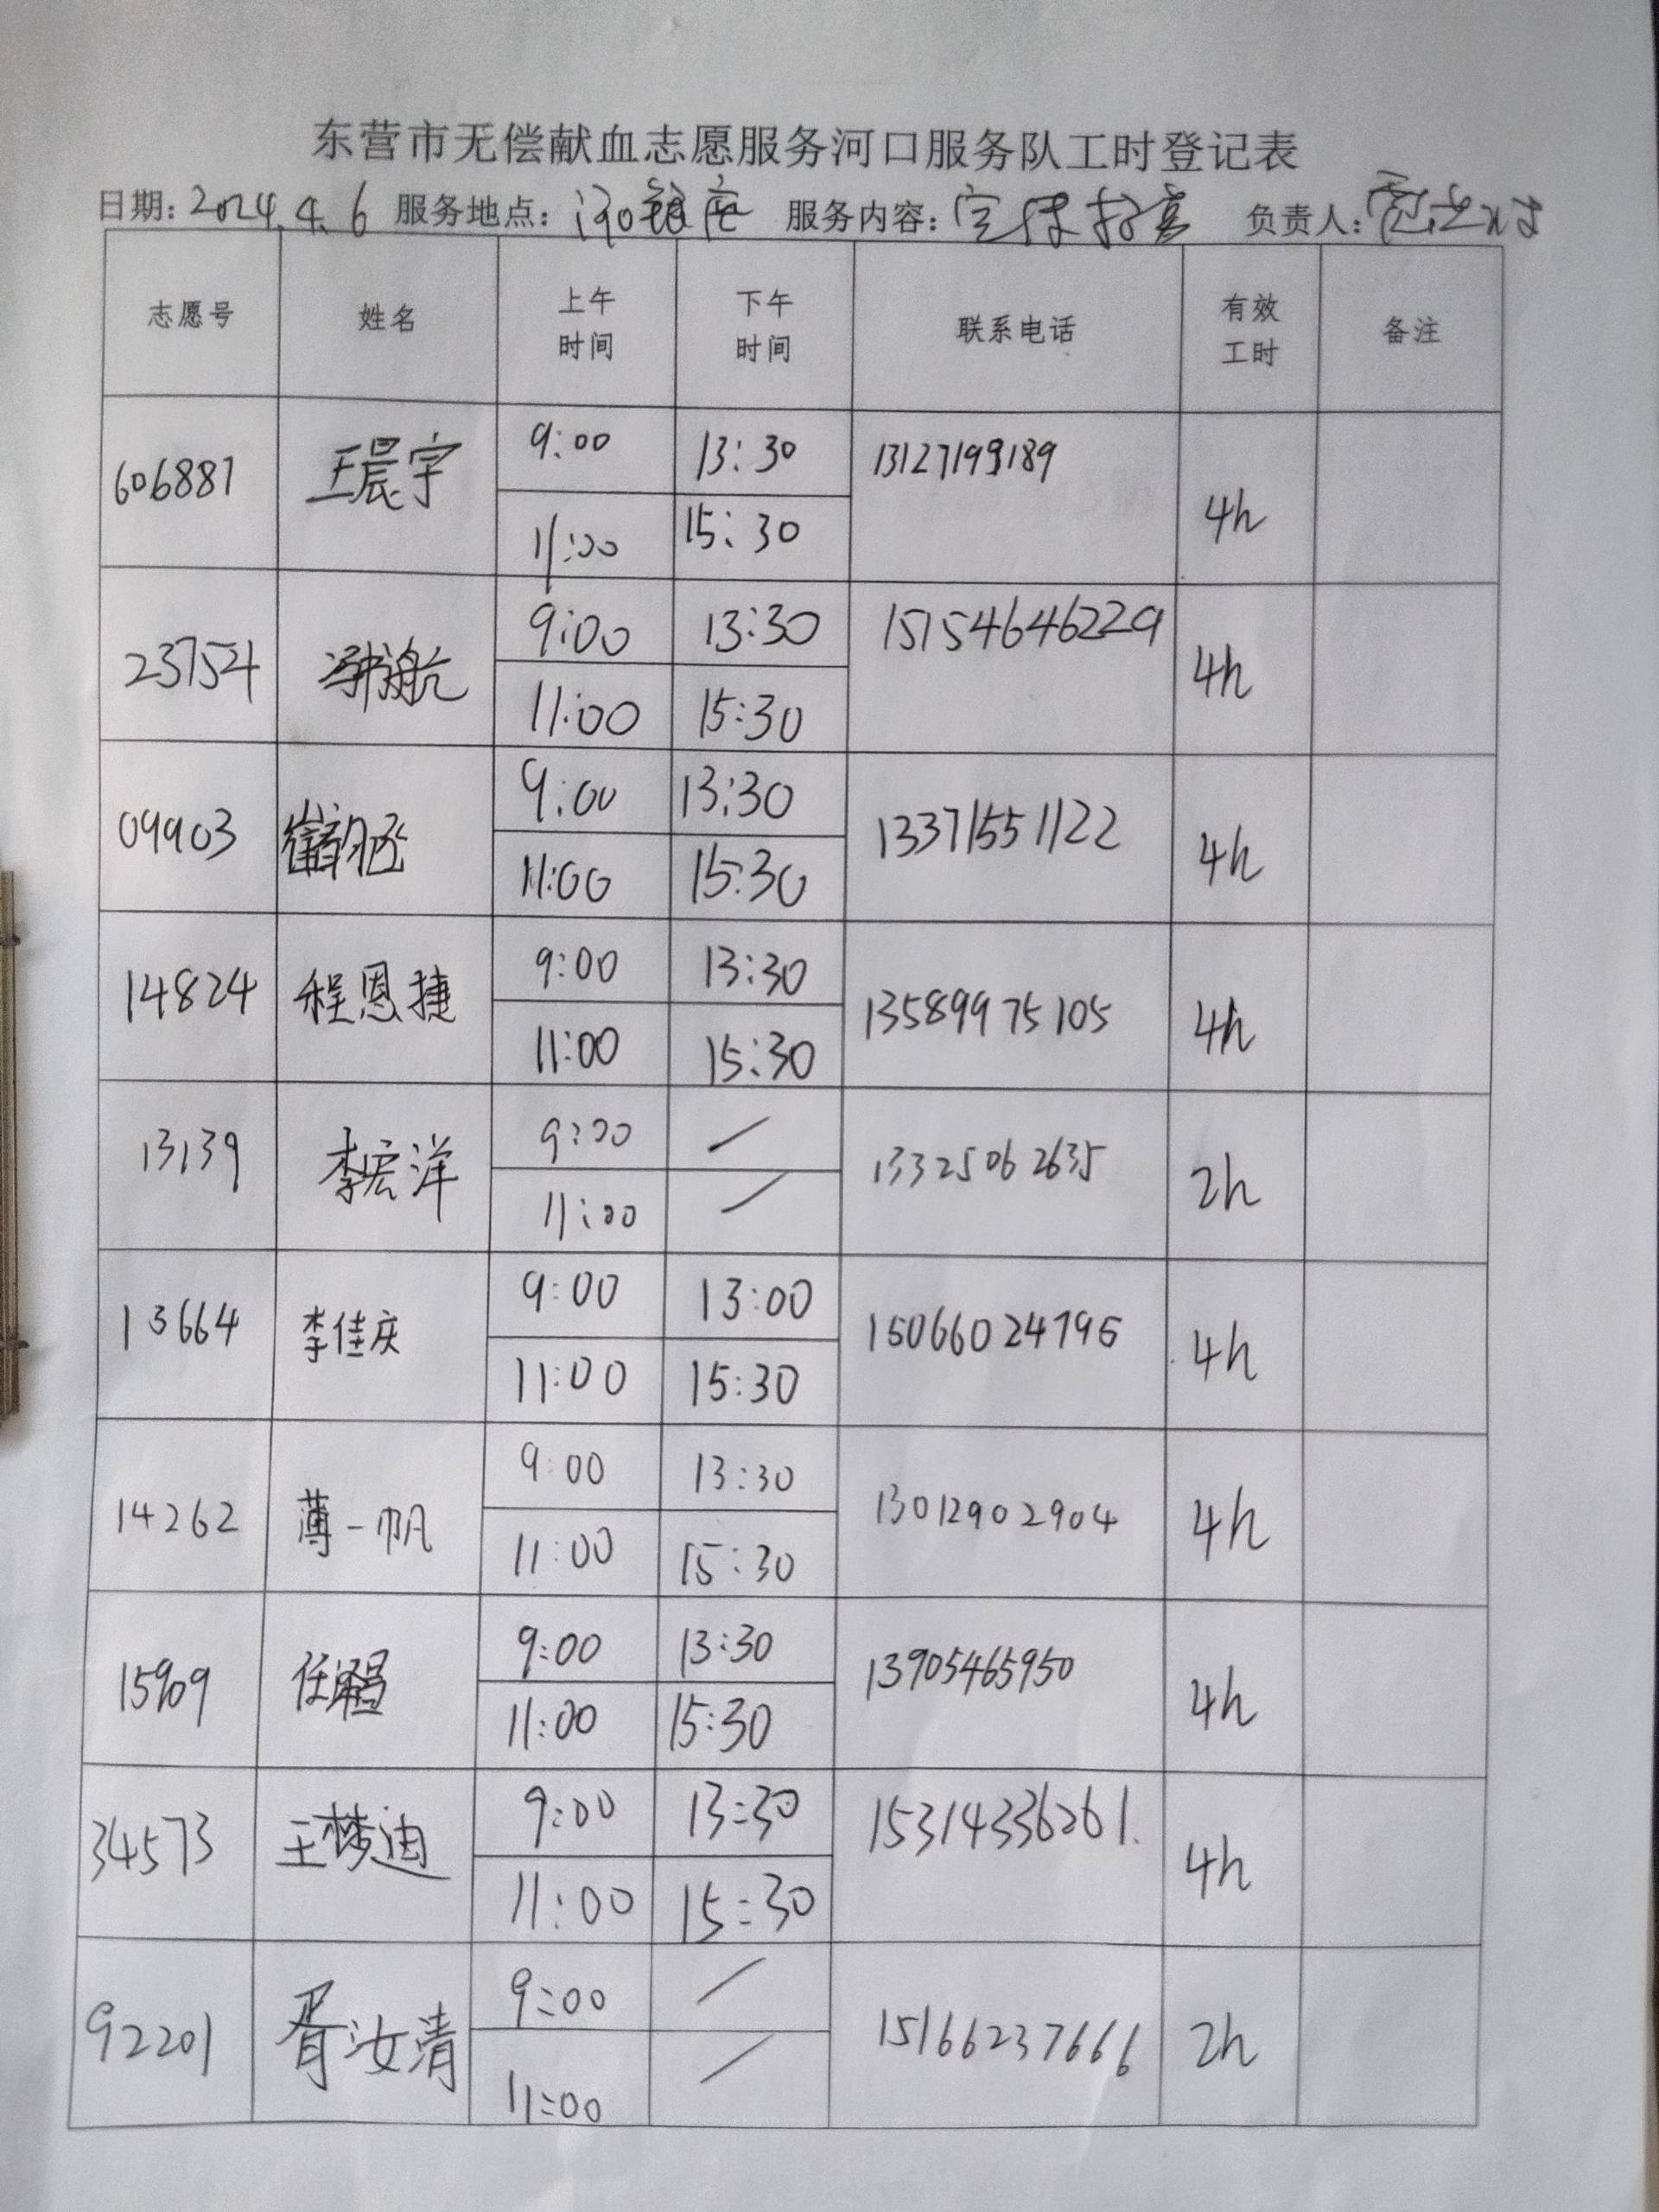 东营市无偿献血志愿服务河口服务队工时登记表
日期: 2024.4.6 服务地点: 河口银座 服务内容: 宣传招募 负责人:
志愿号 姓名 上午时间 下午时间 联系电话 有效工时 备注
606881 王晨宇 9:00 13:30 13127199189 4h
11:00 15:30
23754 9:00 13:30 15154646229 4h
11:00 15:30
09903 崔韵丞 9:00 13:30 13371551122 4h
11:00 15:30
14824 程恩捷 9:00 13:30 13589975105 4h
11:00 15:30
13139 李宏洋 9:00 / 13325062635 2h
11:00 /
13664 李佳庆 9:00 13:00 15066024795 4h
11:00 15:30
14262 薄一帆 9:00 13:30 13012902904 4h
11:00 15:30
15909 任 9:00 13:30 13905465950 4h
11:00 15:30
34573 王梦迪 9:00 13:30 15314336261. 4h
11:00 15:30
92201 胥汝清 9:00 / 15166237666 2h
11:00 /